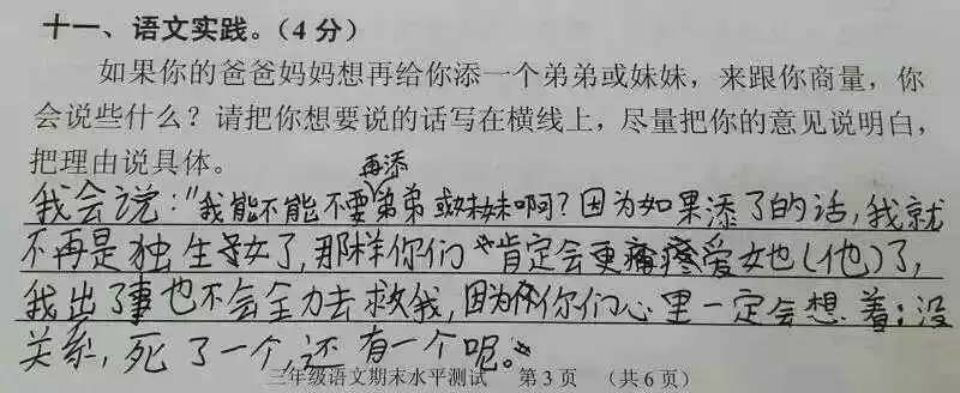 十一、语文实践。（4分）
如果你的爸爸妈妈想再给你添一个弟弟或妹妹，来跟你商量，你
会说些什么？请把你想要说的话写在横线上，尽量把你的意见说明白，
把理由说具体。
我会说："我能不能不要再添弟弟或妹妹啊？因为如果添了的话，我就
不再是独生子女了，那样你们肯定会更疼爱她（他）了，
我出了事也不会全力去救我，因为你们心里一定会想着：没
关系，死了一个，还有一个呢。"
三年级语文期末水平测试 第3页 （共6页）